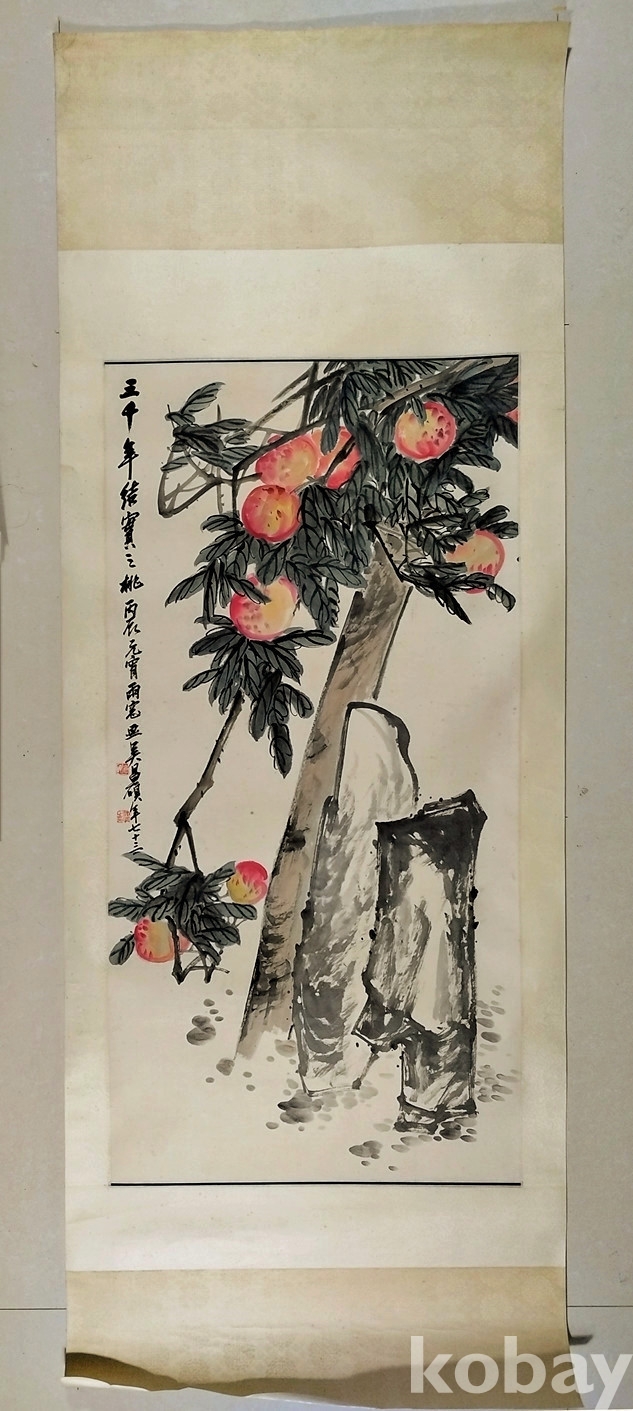 三千年結實之桃 丙辰元宵雨窓 吳昌碩年七十三
kobay